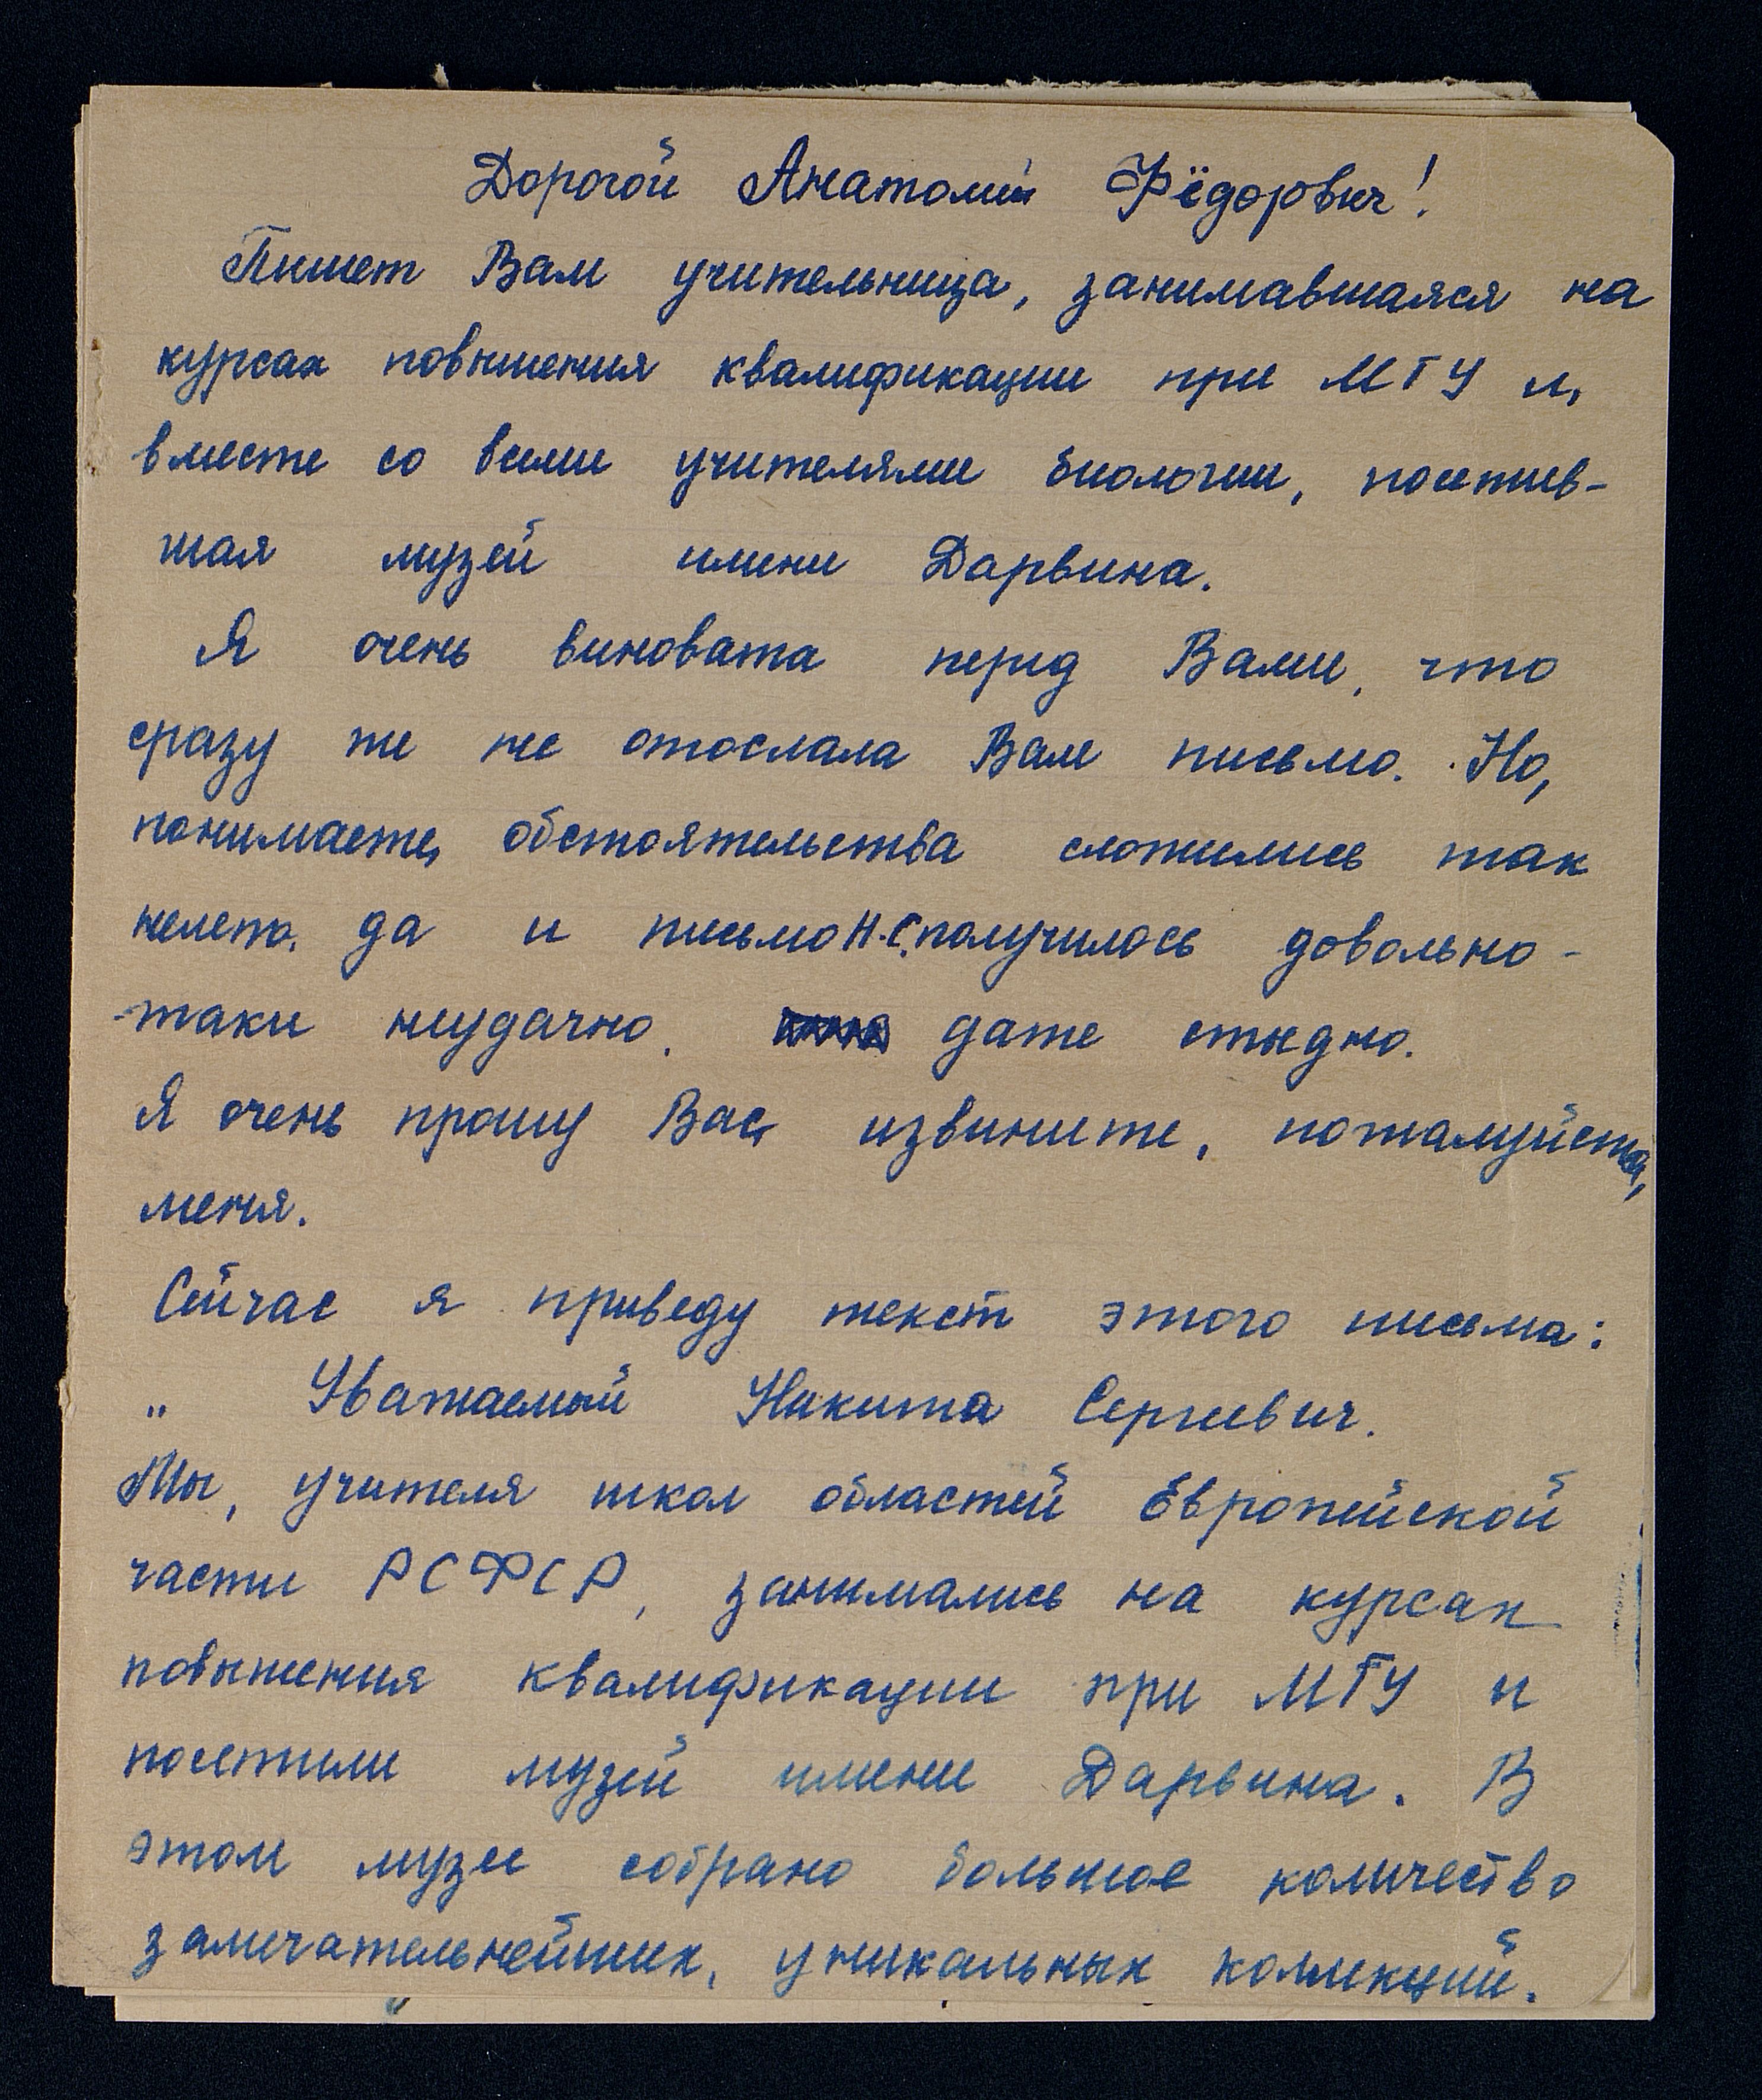 Дорогой Анатолий Фёдорвич!
Пишет Вам учительница, занимавшаяся на
курсах повышения квалификации при МГУ и,
вместе со всеми учителями биологии, посетив-
шая музей имени Дарвина.
Я очень виновата перед Вами, что
сразу же не отослала Вам письмо. Но,
понимаете, обстоятельства сложились так
нелепо, да и письмо Н.С. получилось довольно-
-таки неудачно, даже стыдно.
Я очень прошу Вас, извините, пожалуйста,
меня.
Сейчас я приведу текст этого письма:
„ Уважаемый Никита Сергеевич.
Мы, учителя школ областей Европейской
части РСФСР, занимались на курсах
повышения квалификации при МГУ и
посетили музей имени Дарвина. В
этом музее собрано большое количество
замечательнейших, уникальных коллекций.